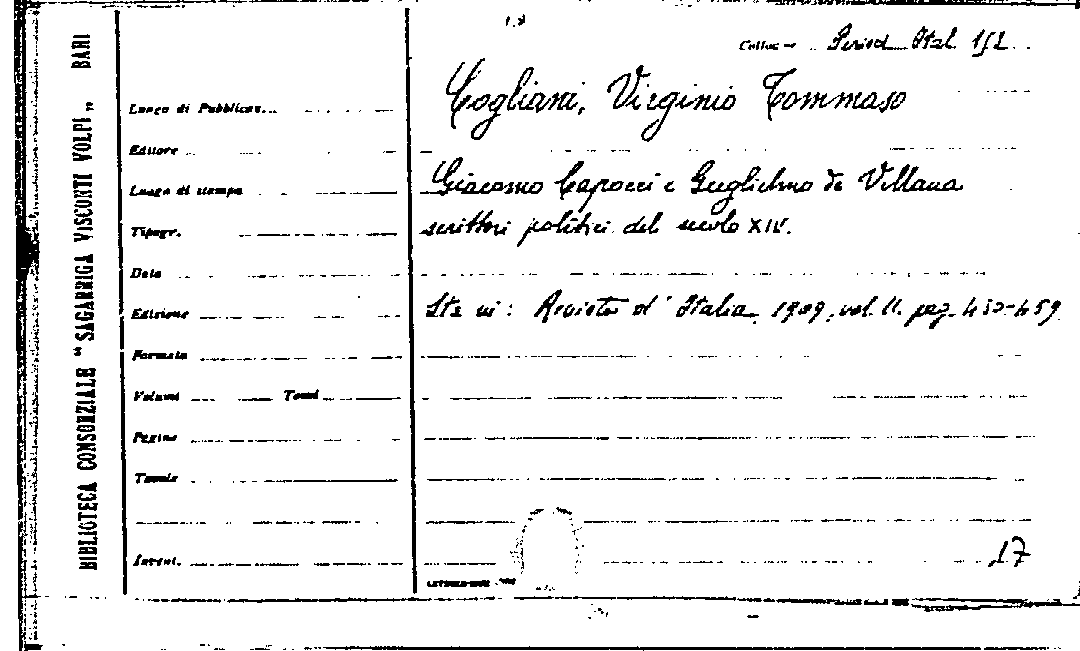 Colloc.ne Period. Ital. 152
Cogliani, Virginio Tommaso
Giacomo Capocci e Guglielmo de Villana
scrittori politici del secolo XIV.
Sta in: Rivista d'Italia, 1909, vol. II. pag. 430-459
17
BIBLIOTECA CONSORZIALE "SAGARRIGA VISCONTI VOLPI„ BARI
Luogo di Pubblicaz...
Editore
Luogo di stampa
Tipogr.
Data
Edizione
Formato
Volumi Tomi
Pagine
Tavole
Invent.